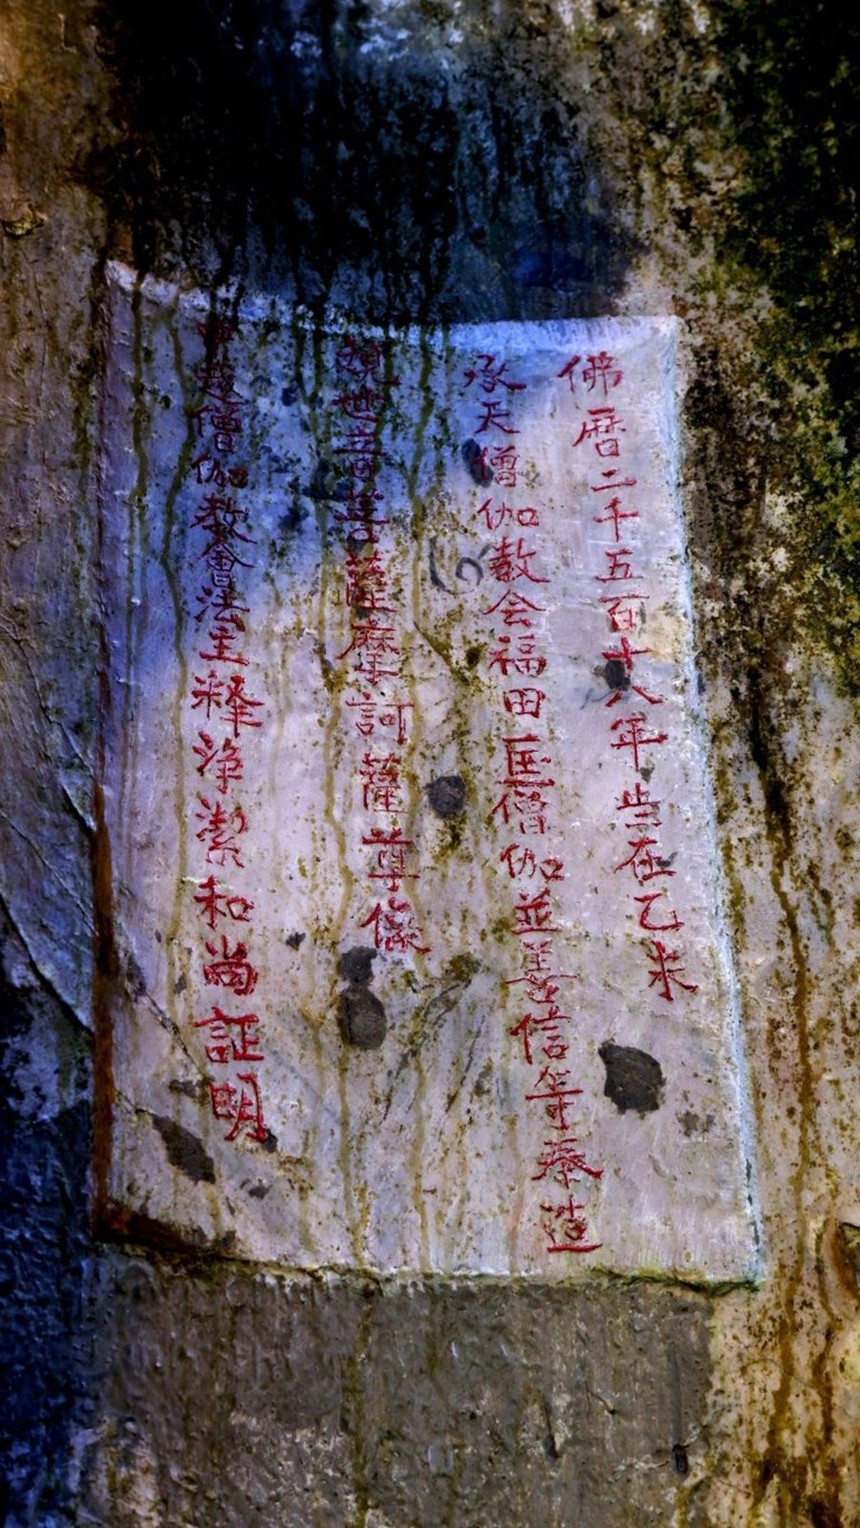 佛暦二千五百十八年在乙未
承天僧伽教会福田匡僧伽並善信等奉造
世音菩薩摩訶薩尊儀
中越僧伽教會法主釋浄潔和尚証明